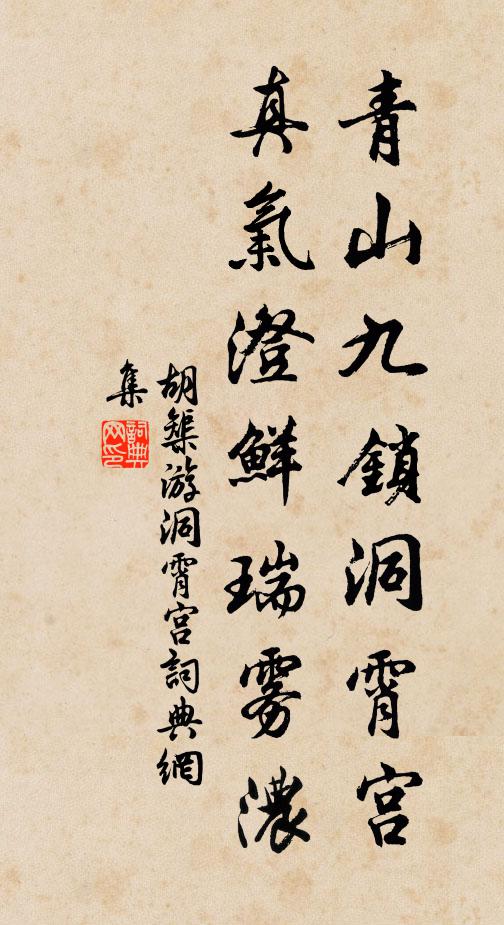 青山九鎖洞霄宫
真氣澄鮮瑞雾濃
胡榘游洞霄宫詞典網
集
詞典
网印